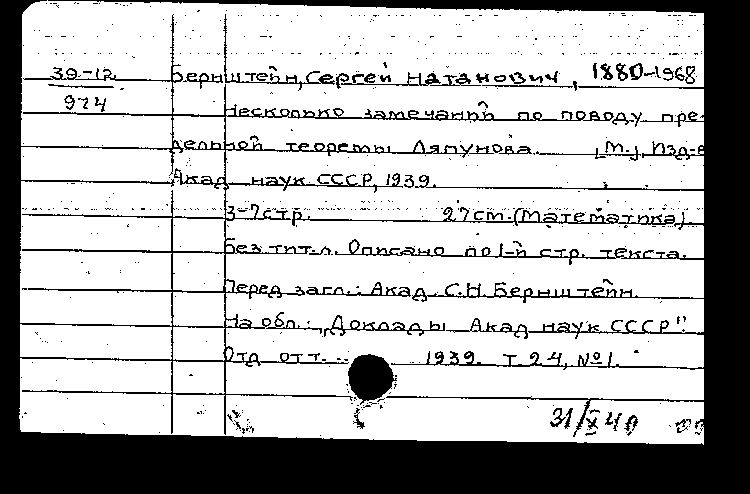 39-12
974
Бернштейн, Сергей Натанович, 1880-1968
Несколько замечаний по поводу пре-
дельной теоремы Ляпунова. [М.], Изд-в
Акад наук СССР, 1939.
3-7 стр. 27 см. (Математика).
Без тит. л. Описано по 1-й стр. текста.
Перед загл.: Акад. С.Н. Бернштейн.
На обл.: „Доклады Акад наук СССР".
Отд отт. 1939. Т. 24, №1.
31/X 40